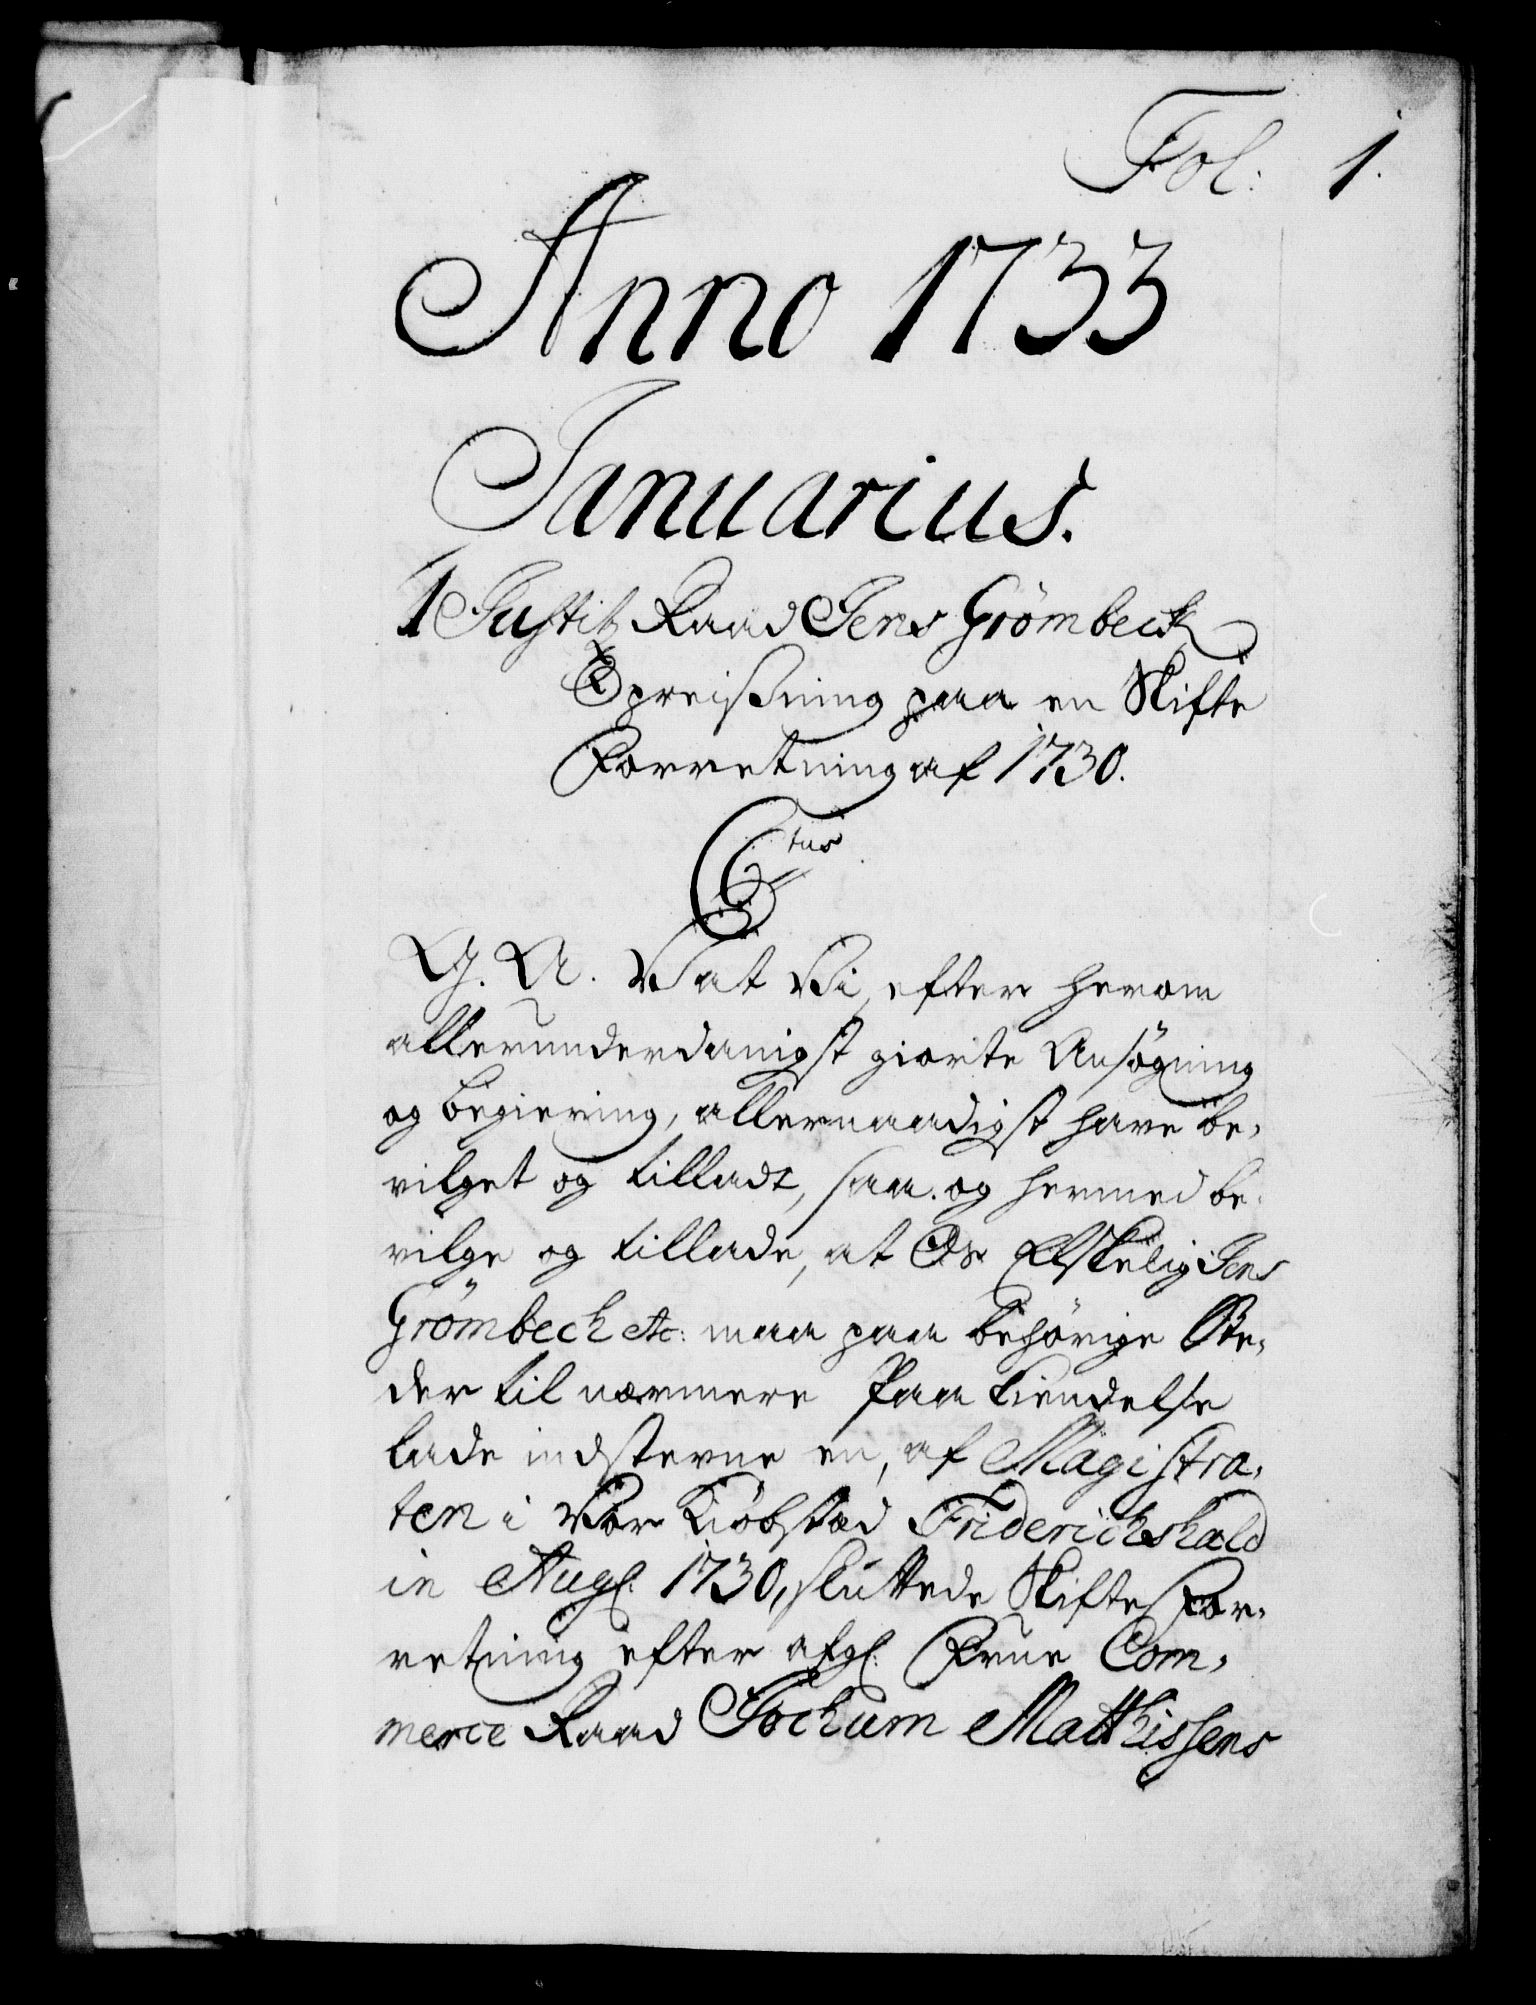 Fol: 1.
Anno 1733
Januarius.
1 Justitz Raad Jens Grömbeck
Opreisning paa en Skifte
Forretning af 1730.
C6tus
G. A. V at Vi, efter herom
allerunderdanigst giorte Ansøgning
og begiering, allernaadigst have be,
vilget og tilladt, saa og hermed be,
vilge og tillade, at Os Elskelig Jens
Grömbech etc: maa paa behørige Ste,
der til nærmere Paa kiendelse
lade indstevne en, af Magistra,
ten i Vor Kiøbstæd Friderichshald
in Aug: 1730, sluttede Skiftes For,
retning efter afg: Frue Com,
merce Raad Jochum Mathissens